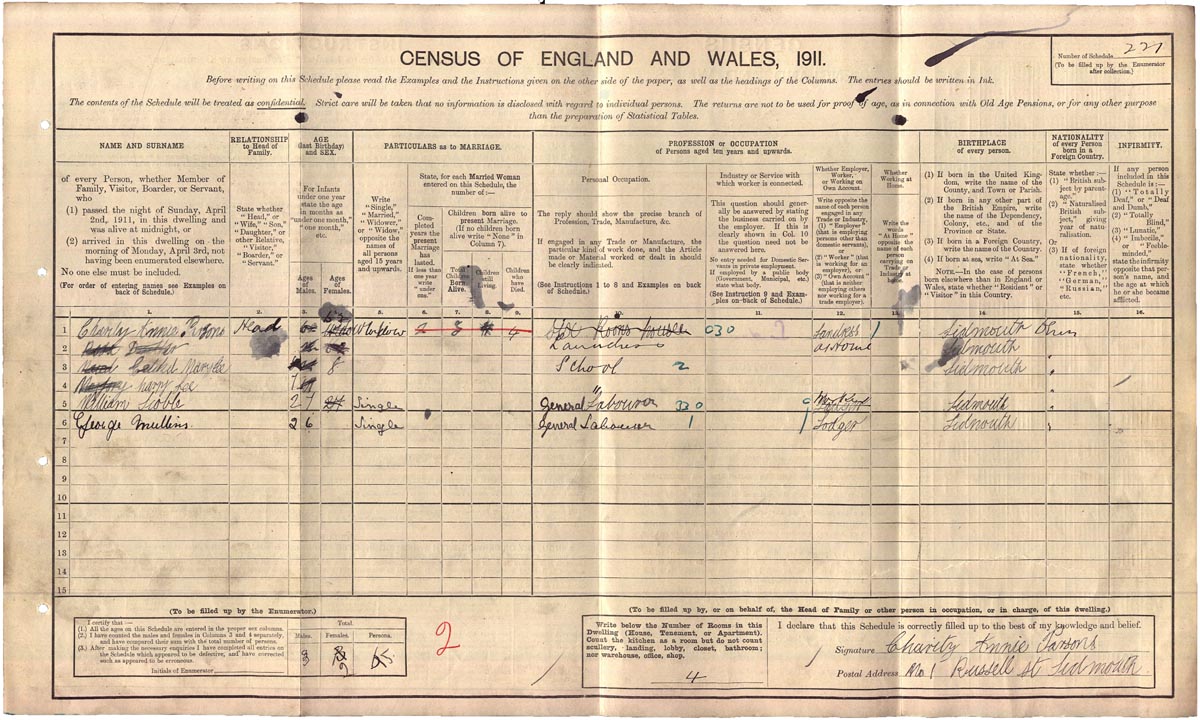 CENSUS OF ENGLAND AND WALES, 1911.
Number of Schedule 221
(To be filled up by the Enumerator
after collection.)
Before writing on this Schedule please read the Examples and the Instructions given on the other side of the paper, as well as the headings of the Columns. The entries should be written in Ink.
The contents of the Schedule will be treated as confidential. Strict care will be taken that no information is disclosed with regard to individual persons. The returns are not to be used for proof of age, as in connection with Old Age Pensions, or for any other purpose
than the preparation of Statistical Tables.
NAME AND SURNAME
of every Person, whether Member of
Family, Visitor, Boarder, or Servant,
who
(1) passed the night of Sunday, April
2nd, 1911, in this dwelling and
was alive at midnight, or
(2) arrived in this dwelling on the
morning of Monday, April 3rd, not
having been enumerated elsewhere.
No one else must be included.
(For order of entering names see Examples on
back of Schedule.)
RELATIONSHIP
to Head of
Family.
State whether
"Head," or
"Wife," "Son,"
"Daughter," or
other Relative,
"Visitor,"
"Boarder," or
"Servant."
AGE
(last Birthday)
and SEX.
For Infants
under one year
state the age
in months as
"under one month,"
"one month,"
etc.
Ages
of
Males.
Ages
of
Females.
PARTICULARS as to MARRIAGE.
Write
"Single,"
"Married,"
"Widower,"
or "Widow,"
opposite the
names of
all persons
aged 15 years
and upwards.
State, for each Married Woman
entered on this Schedule, the
number of :—
Completed
years the
present
Marriage
has
lasted.
If less than
one year
write
"under
one."
Children born alive to
present Marriage.
(If no children born
alive write "None" in
Column 7).
Total
Children
Born
Alive.
Children
still
Living.
Children
who
have
Died.
PROFESSION or OCCUPATION
of Persons aged ten years and upwards.
Personal Occupation.
The reply should show the precise branch of
Profession, Trade, Manufacture, &c.
If engaged in any Trade or Manufacture, the
particular kind of work done, and the Article
made or Material worked or dealt in should
be clearly indicated.
(See Instructions 1 to 8 and Examples on back
of Schedule.)
Industry or Service with
which worker is connected.
This question should gener-
ally be answered by stating
the business carried on by
the employer. If this is
clearly shown in Col. 10
the question need not be
answered here.
No entry needed for Domestic Ser-
vants in private employment.
If employed by a public body
(Government, Municipal, etc.)
state what body.
(See Instruction 9 and Exam-
ples on Back of Schedule.)
Whether Employer,
Worker,
or Working on
Own Account.
Write opposite the name
of each person engaged
in any Trade or Industry,
(1) "Employer"
(that is employing
persons other than
domestic servants),
or
(2) "Worker" (that
is working for an
employer), or
(3) "Own Account"
(that is neither
employing others
nor working for a
trade employer).
Whether
Working at
Home.
Write the
words
"At Home"
opposite the
name of each
person
carrying on
Trade or
Industry at
Home.
BIRTHPLACE
of every person.
(1) If born in the United King-
dom, write the name of the
County, and Town or Parish.
(2) If born in any other part of
the British Empire, write
the name of the Dependency,
Colony, etc., and of the
Province or State.
(3) If born in a Foreign Country,
write the name of the Country.
(4) If born at sea, write "At Sea."
NOTE.—In the case of persons
born elsewhere than in England or
Wales, state whether "Resident" or
"Visitor" in this Country.
NATIONALITY
of every Person
born in a
Foreign Country.
State whether :—
(1) "British sub-
ject by parent-
age,"
(2) "Naturalised
British sub-
ject," giving
year of natu-
ralisation.
Or
(3) If of foreign
nationality,
state whether
"French,"
"German,"
"Russian,"
etc.
INFIRMITY.
If any person
included in this
Schedule is :—
(1) "Totally
Deaf," or "Deaf
and Dumb,"
(2) "Totally
Blind,"
(3) "Lunatic,"
(4) "Imbecile,"
or "Feeble-
minded,"
state the infirmity
opposite that per-
son's name, and
the age at which
he or she became
afflicted.
1. 2. 3. 4. 5. 6. 7. 8. 9. 10. 11. 12. 13. 14. 15. 16.
1 Annie Parsons Head 52 Widow 030 1 Sidmouth
2 Laundress at Home Sidmouth
3 8 School 2 Sidmouth
4 7 "
5 William 27 Single General Labourer Sidmouth
6 George Mullins 26 Single General Labourer 1 Lodger Sidmouth
7
8
9
10
11
12
13
14
15
(To be filled up by the Enumerator.)
I certify that :—
(1.) All the ages on this Schedule are entered in the proper sex columns.
(2.) I have counted the males and females in Columns 3 and 4 separately,
and have compared their sum with the total number of persons.
(3.) After making the necessary enquiries I have completed all entries on
the Schedule which appeared to be defective, and have corrected
such as appeared to be erroneous.
Initials of Enumerator
Total.
Males. Females. Persons.
3 2 5
2
(To be filled up by, or on behalf of, the Head of Family or other person in occupation, or in charge, of this dwelling.)
Write below the Number of Rooms in this
Dwelling (House, Tenement, or Apartment).
Count the kitchen as a room but do not count
scullery, landing, lobby, closet, bathroom;
nor warehouse, office, shop.
4
I declare that this Schedule is correctly filled up to the best of my knowledge and belief.
Signature Charity Annie Parsons
Postal Address No 1 Russell St Sidmouth